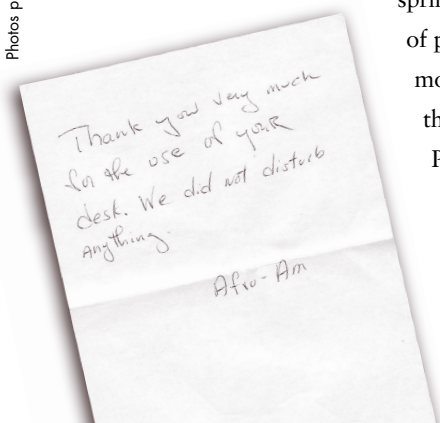 Photos p
sprin
of p
mo
th
P
Thank you very much
for the use of your
desk. We did not disturb
anything.
Afro-Am